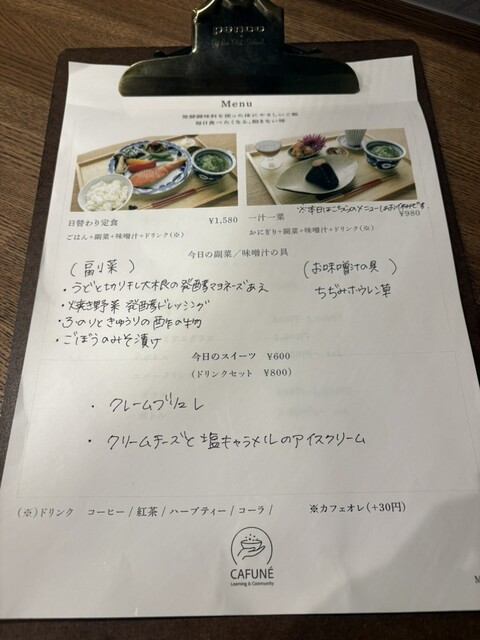 penco
Menu
発酵調味料を使った体にやさしいご飯
毎日食べたくなる、飽きない味
※本日はこちらのメニューはお休みです。
日替わり定食 ¥1,580
ごはん+副菜+味噌汁+ドリンク(※)
一汁一菜 ¥980
おにぎり+副菜+味噌汁+ドリンク(※)
今日の副菜/味噌汁の具
(副菜)
・うどと切りキし大木良の発酵マヨネーズあえ
・焼き野菜 発酵ドレッシング
・ふのりときゅうりの酢の物
・ごぼうのみそ漬け
(お味噌汁の具)
ちぢみホウレン草
今日のスイーツ ¥600
(ドリンクセット ¥800)
・クレームブリュレ
・クリームチーズと塩キャラメルのアイスクリーム
(※)ドリンク コーヒー/紅茶/ハーブティー/コーラ/ ※カフェオレ(+30円)
CAFUNÉ
Learning & Community
M